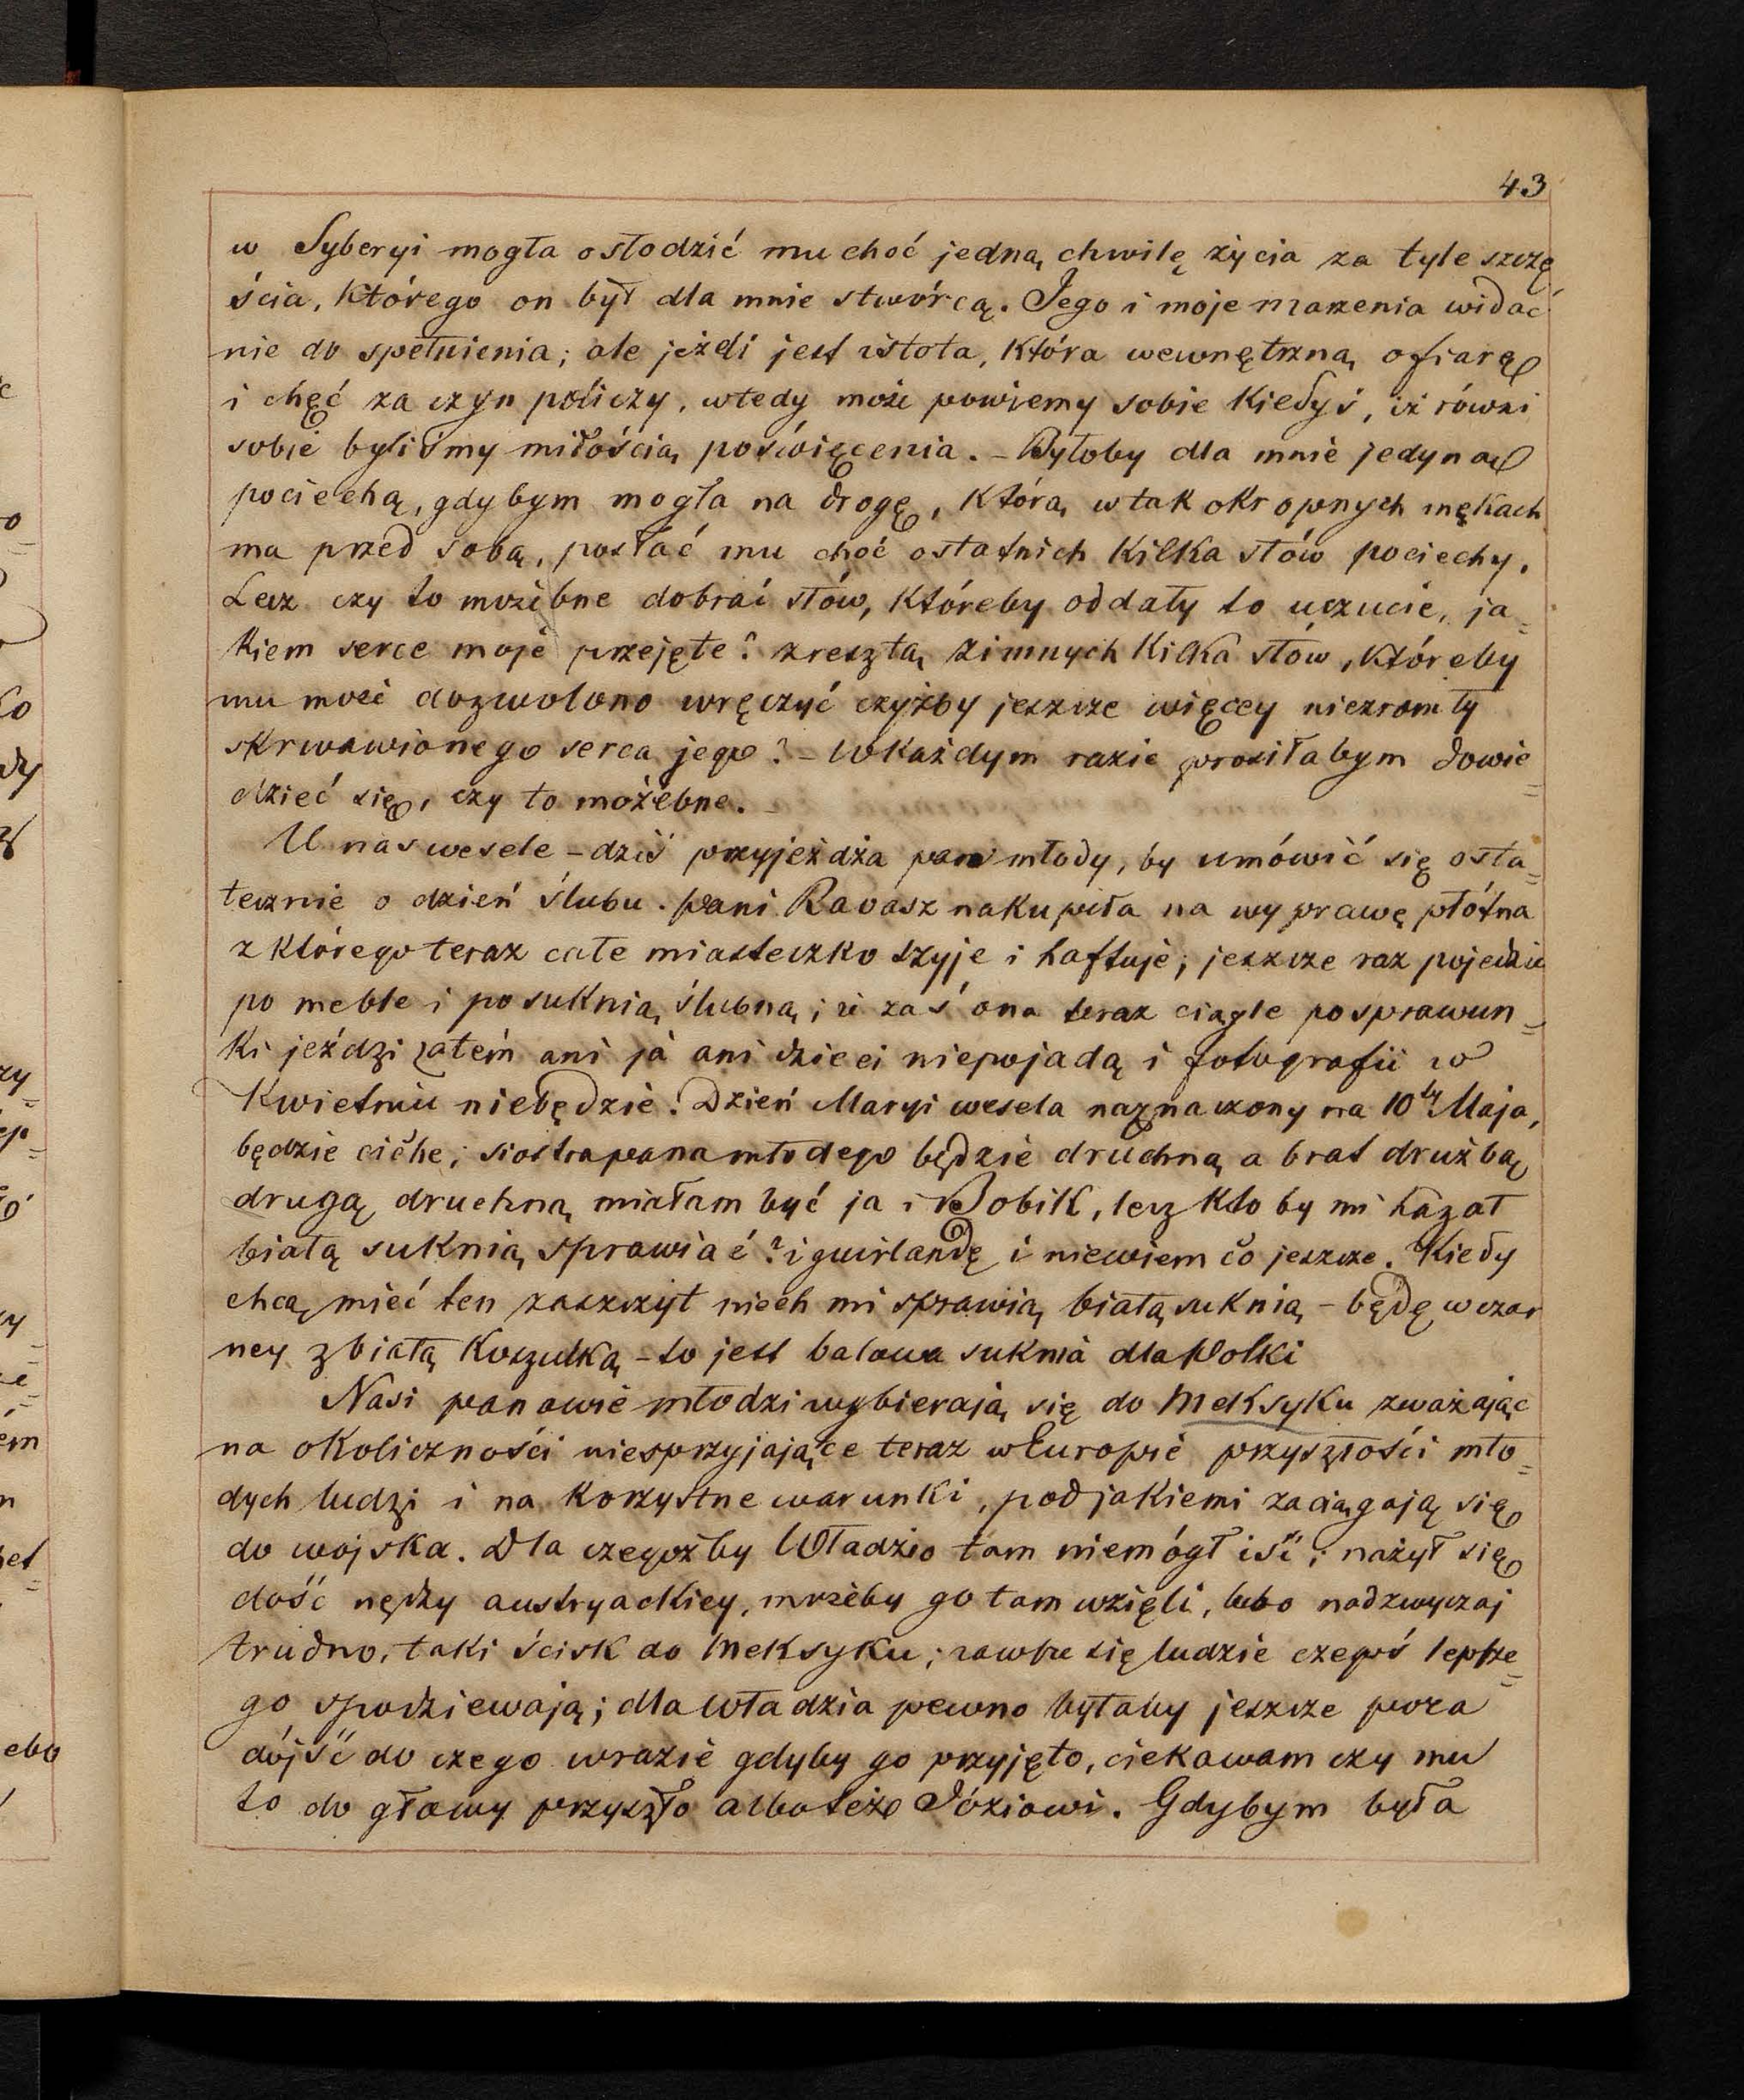 43
w Syberyi mogła osłodzić mu choć jedną chwilę życia za tyle szczę
ścia, którego on był dla mnie stwórcą. Jego i moje marzenia widać
nie do spełnienia; ale jeżeli jest istota, która wewnętrzną ofiarę
i chęć za czyn policzy, wtedy może powiemy sobie kiedyś, iż równi
sobie byliśmy miłością poświęcenia. – Byłoby dla mnie jedyną
pociechą, gdybym mogła na drogę, którą w tak okropnych mękach
ma przed sobą, posłać mu choć ostatnich kilka słów pociechy.
Lecz czy to możebne dobrać słów, któreby oddały to uczucie, ja=
kiem serce moje przejęte? zresztą zimnych kilka słów, któreby
mu może dozwolono wręczyć czyżby jeszcze więcey niezromiły
skrwawionego serca jego? – W każdym razie prosiłabym dowie=
dzieć się, czy to możebne. –
U nas wesele – dziś przyjeżdża pan młody, by umówić się osta=
tecznie o dzień ślubu. Pani Ravasz nakupiła na wyprawę płótna
z którego teraz całe miasteczko szyje i haftuje; jeszcze raz pojedzie
po meble i po suknią ślubną; iż zaś ona teraz ciągle po sprawun=
ki jeździ zatem ani ja ani dzieci niepojadą i fotografii w
Kwietniu niebędzie. Dzień Maryi wesela naznaczony na 10ty Maja,
będzie ciche; siostra pana młodego będzie druchną a brat drużbą
drugą druchną miałam być ja i Bobik, lecz kto by mi kazał
białą suknią sprawiać? i guirlandę i niewiem co jeszcze. Kiedy
chcą mieć ten zaszczyt niech mi sprawią białą suknią – będę w czar
ney z białą koszulką – to jest balowa suknia dla Polki
Nasi panowie młodzi wybierają się do Meksyku zważając
na okoliczności niesprzyjające teraz w Europie przyszłości mło=
dych ludzi i na korzystne warunki, pod jakiemi zaciągają się
do wojska. Dla czegożby Władzio tam niemógł iść; nażył się
dość nędzy austryackiey, możeby go tam wzięli, lubo nadzwyczaj
trudno, taki ścisk do Meksyku; zawsze się ludzie czegoś lepsze=
go spodziewają; dla Władzia pewno byłaby jeszcze pora
dójść do czego wrazie gdyby go przyjęto, ciekawam czy mu
to do głowy przyszło albo też Józiowi. Gdybym była